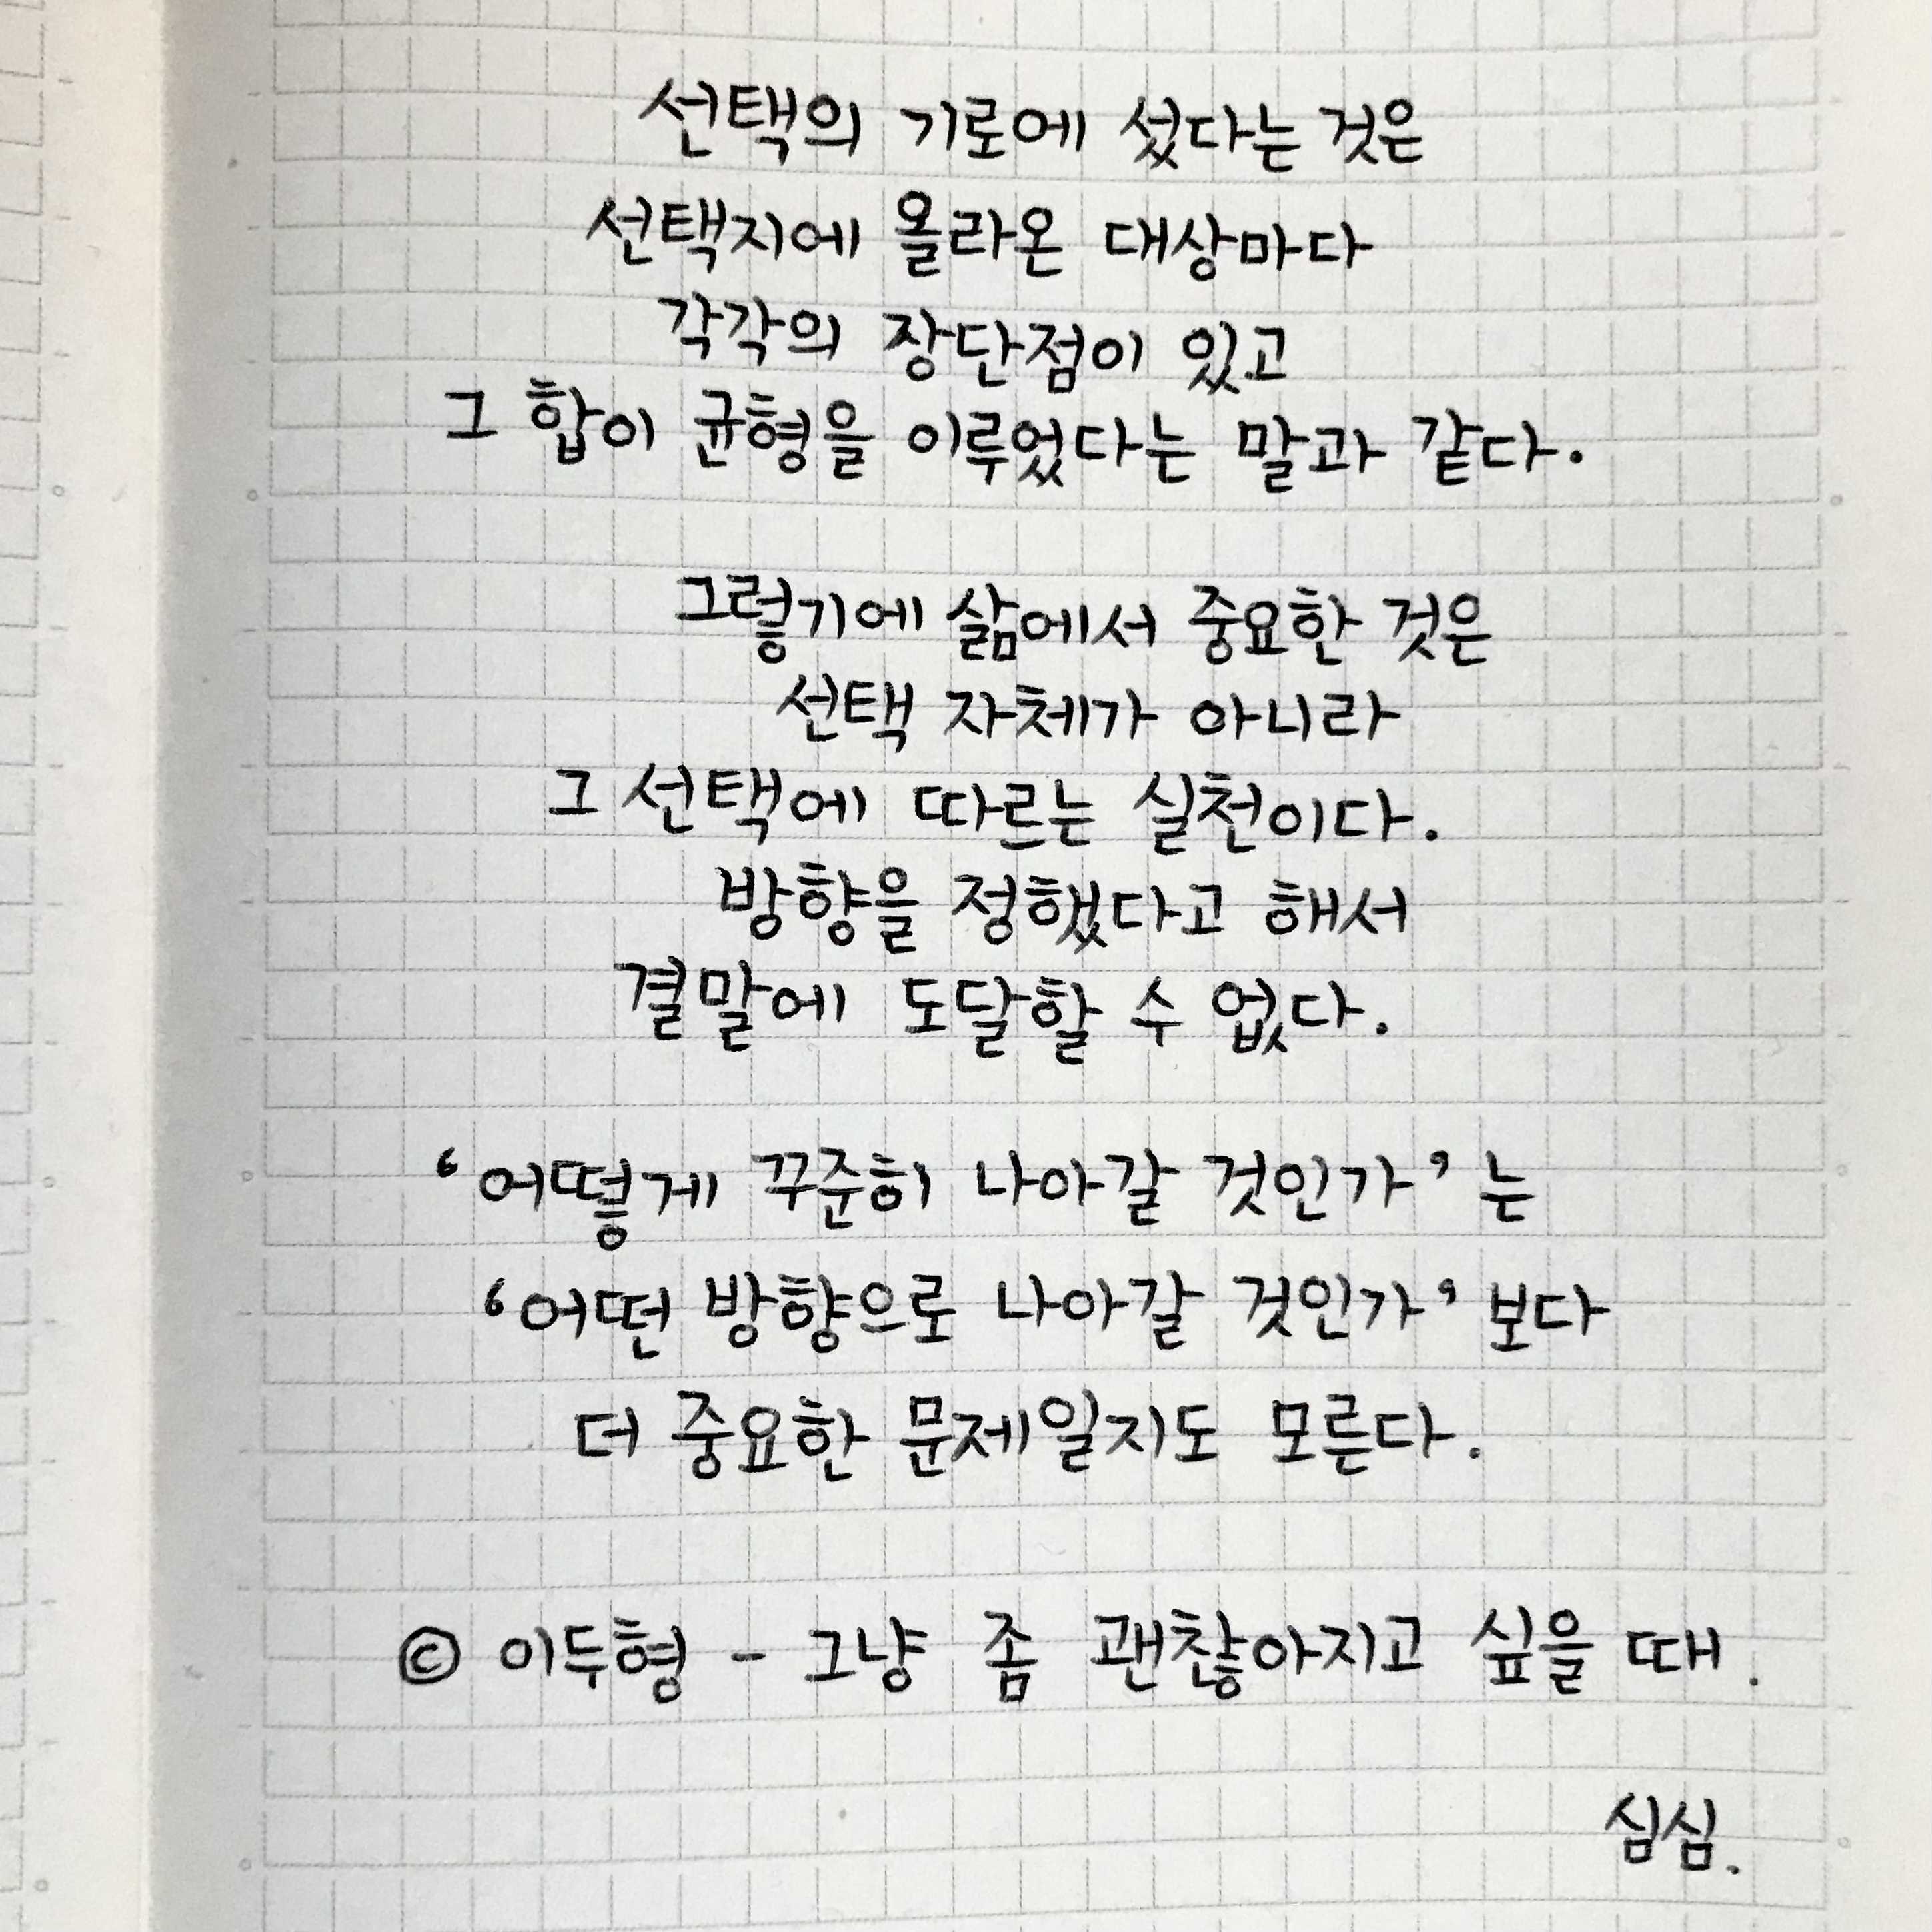 선택의 기로에 섰다는 것은
선택지에 올라온 대상마다
각각의 장단점이 있고
그 합이 균형을 이루었다는 말과 같다.
그렇기에 삶에서 중요한 것은
선택 자체가 아니라
그 선택에 따르는 실천이다.
방향을 정했다고 해서
결말에 도달할 수 없다.
‘어떻게 꾸준히 나아갈 것인가’는
‘어떤 방향으로 나아갈 것인가’보다
더 중요한 문제일지도 모른다.
© 이두형 - 그냥 좀 괜찮아지고 싶을 때.
심심.